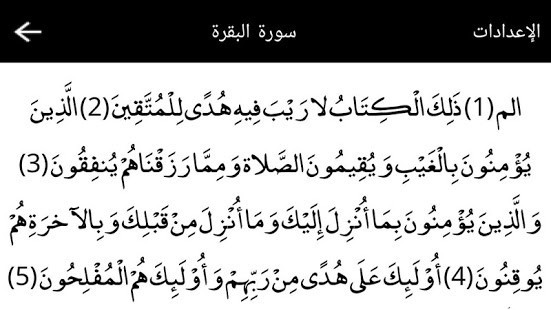 الإعدادات سورة البقرة
الم (1) ذَلِكَ الْكِتَابُ لا رَيْبَ فِيهِ هُدًى لِلْمُتَّقِينَ (2) الَّذِينَ
يُؤْمِنُونَ بِالْغَيْبِ وَيُقِيمُونَ الصَّلاةَ وَمِمَّا رَزَقْنَاهُمْ يُنفِقُونَ (3)
وَالَّذِينَ يُؤْمِنُونَ بِمَا أُنْزِلَ إِلَيْكَ وَمَا أُنْزِلَ مِنْ قَبْلِكَ وَبِالآخَرَةِ هُمْ
يُوقِنُونَ (4) أُوْلَئِكَ عَلَى هُدًى مِنْ رَبِّهِمْ وَأُوْلَئِكَ هُمْ الْمُفْلِحُونَ (5)